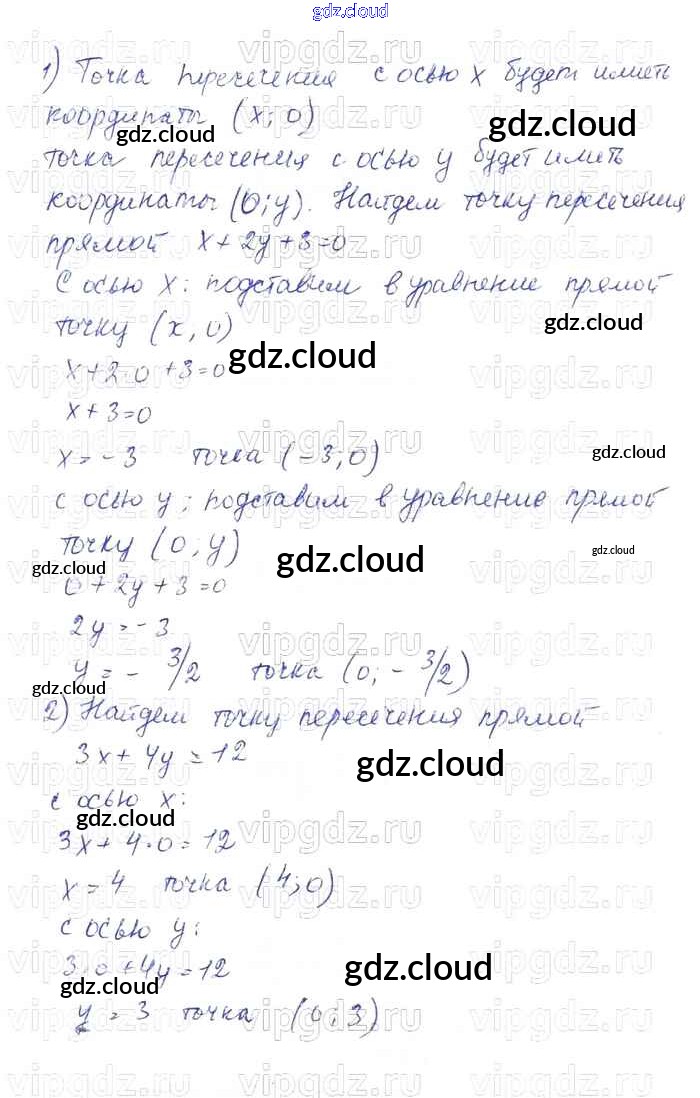 gdz.cloud
1) Точка пересечения с осью x будет иметь
координаты (x; 0)
gdz.cloud gdz.cloud
точка пересечения с осью y будет иметь
координаты (0; y). Найдем точку пересечения
прямой x + 2y + 3 = 0
С осью x: подставим в уравнение прямой
точку (x, 0)
gdz.cloud
gdz.cloud
x + 2·0 + 3 = 0
x + 3 = 0
x = - 3 точка (- 3; 0)
gdz.cloud
с осью y; подставим в уравнение прямой
точку (0; y)
gdz.cloud gdz.cloud gdz.cloud
0 + 2y + 3 = 0
2y = - 3
y = - 3/2 точка (0; - 3/2)
gdz.cloud
2) Найдем точку пересечения прямой
3x + 4y = 12
gdz.cloud
с осью x:
gdz.cloud
3x + 4·0 = 12
x = 4 точка (4; 0)
с осью y:
3·0 + 4y = 12
gdz.cloud gdz.cloud
y = 3 точка (0; 3)